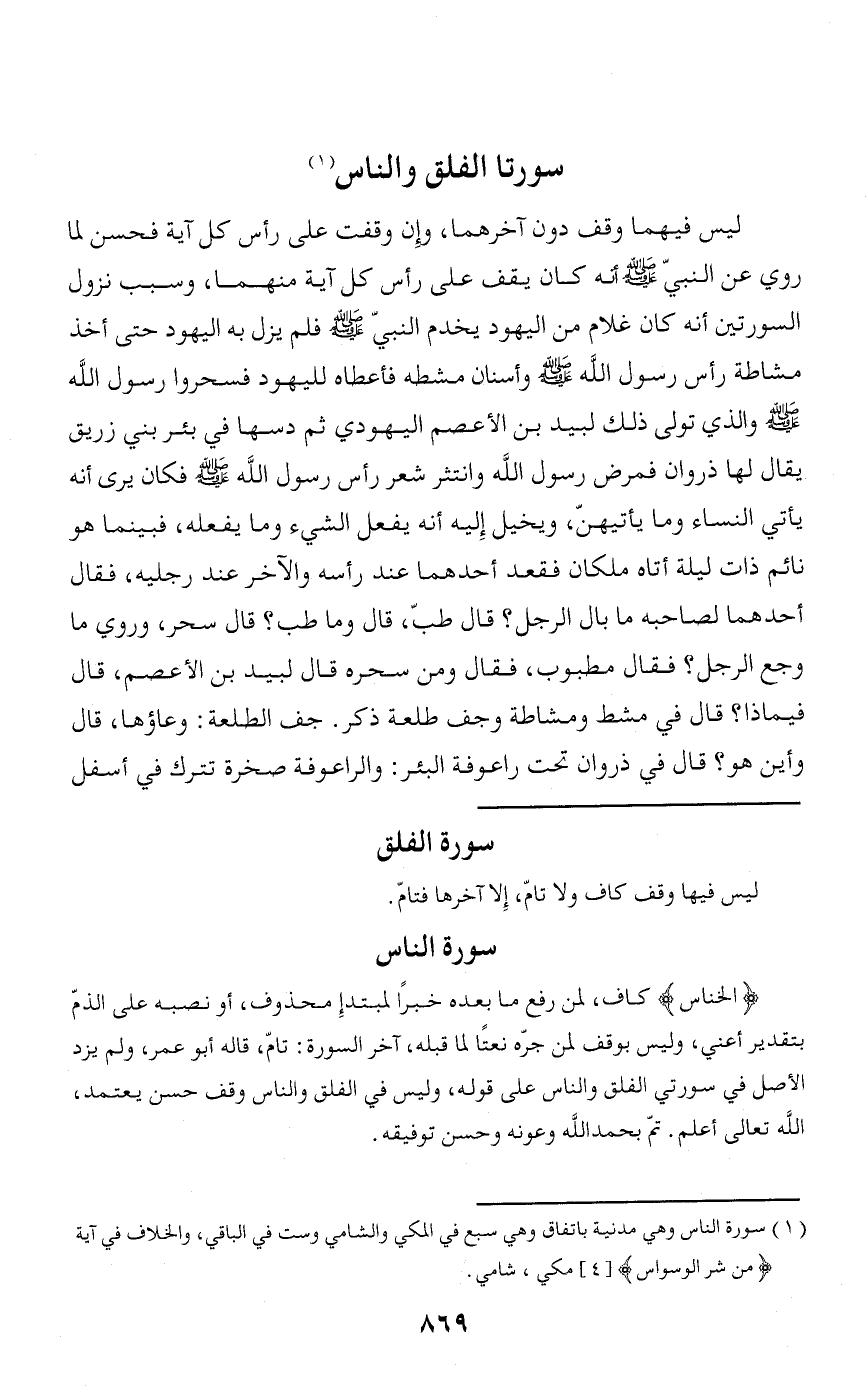 سورتا الفلق والناس(١)
ليس فيهما وقف دون آخرهما، وإن وقفت على رأس كل آية فحسن لما
روي عن النبيّ ﷺ أنه كان يقف على رأس كل آية منهما، وسبب نزول
السورتين أنه كان غلام من اليهود يخدم النبيّ ﷺ فلم يزل به اليهود حتى أخذ
مشاطة رأس رسول اللَّه ﷺ وأسنان مشطه فأعطاه لليهود فسحروا رسول اللَّه
ﷺ والذي تولى ذلك لبيد بن الأعصم اليهودي ثم دسها في بئر بني زريق
يقال لها ذروان فمرض رسول اللَّه وانتثر شعر رأس رسول اللَّه ﷺ فكان يرى أنه
يأتي النساء وما يأتيهنّ، ويخيل إليه أنه يفعل الشيء وما يفعله، فبينما هو
نائم ذات ليلة أتاه ملكان فقعد أحدهما عند رأسه والآخر عند رجليه، فقال
أحدهما لصاحبه ما بال الرجل؟ قال طبّ، قال وما طب؟ قال سحر، وروي ما
وجع الرجل؟ فقال مطبوب، فقال ومن سحره قال لبيد بن الأعصم، قال
فيماذا؟ قال في مشط ومشاطة وجف طلعة ذكر. جف الطلعة: وعاؤها، قال
وأين هو؟ قال في ذروان تحت راعوفة البئر: والراعوفة صخرة تترك في أسفل
سورة الفلق
ليس فيها وقف كاف ولا تامّ، إلا آخرها فتامّ.
سورة الناس
﴿الخناس﴾ كاف، لمن رفع ما بعده خبرًا لمبتدإ محذوف، أو نصبه على الذمّ
بتقدير أعني، وليس بوقف لمن جرّه نعتًا لما قبله، آخر السورة: تامّ، قاله أبو عمر، ولم يزد
الأصل في سورتي الفلق والناس على قوله، وليس في الفلق والناس وقف حسن يعتمد،
اللَّه تعالى أعلم. تمّ بحمداللَّه وعونه وحسن توفيقه.
(١) سورة الناس وهي مدنية باتفاق وهي سبع في المكي والشامي وست في الباقي، والخلاف في آية
﴿من شر الوسواس﴾ [٤] مكي ، شامي.
٨٦٩